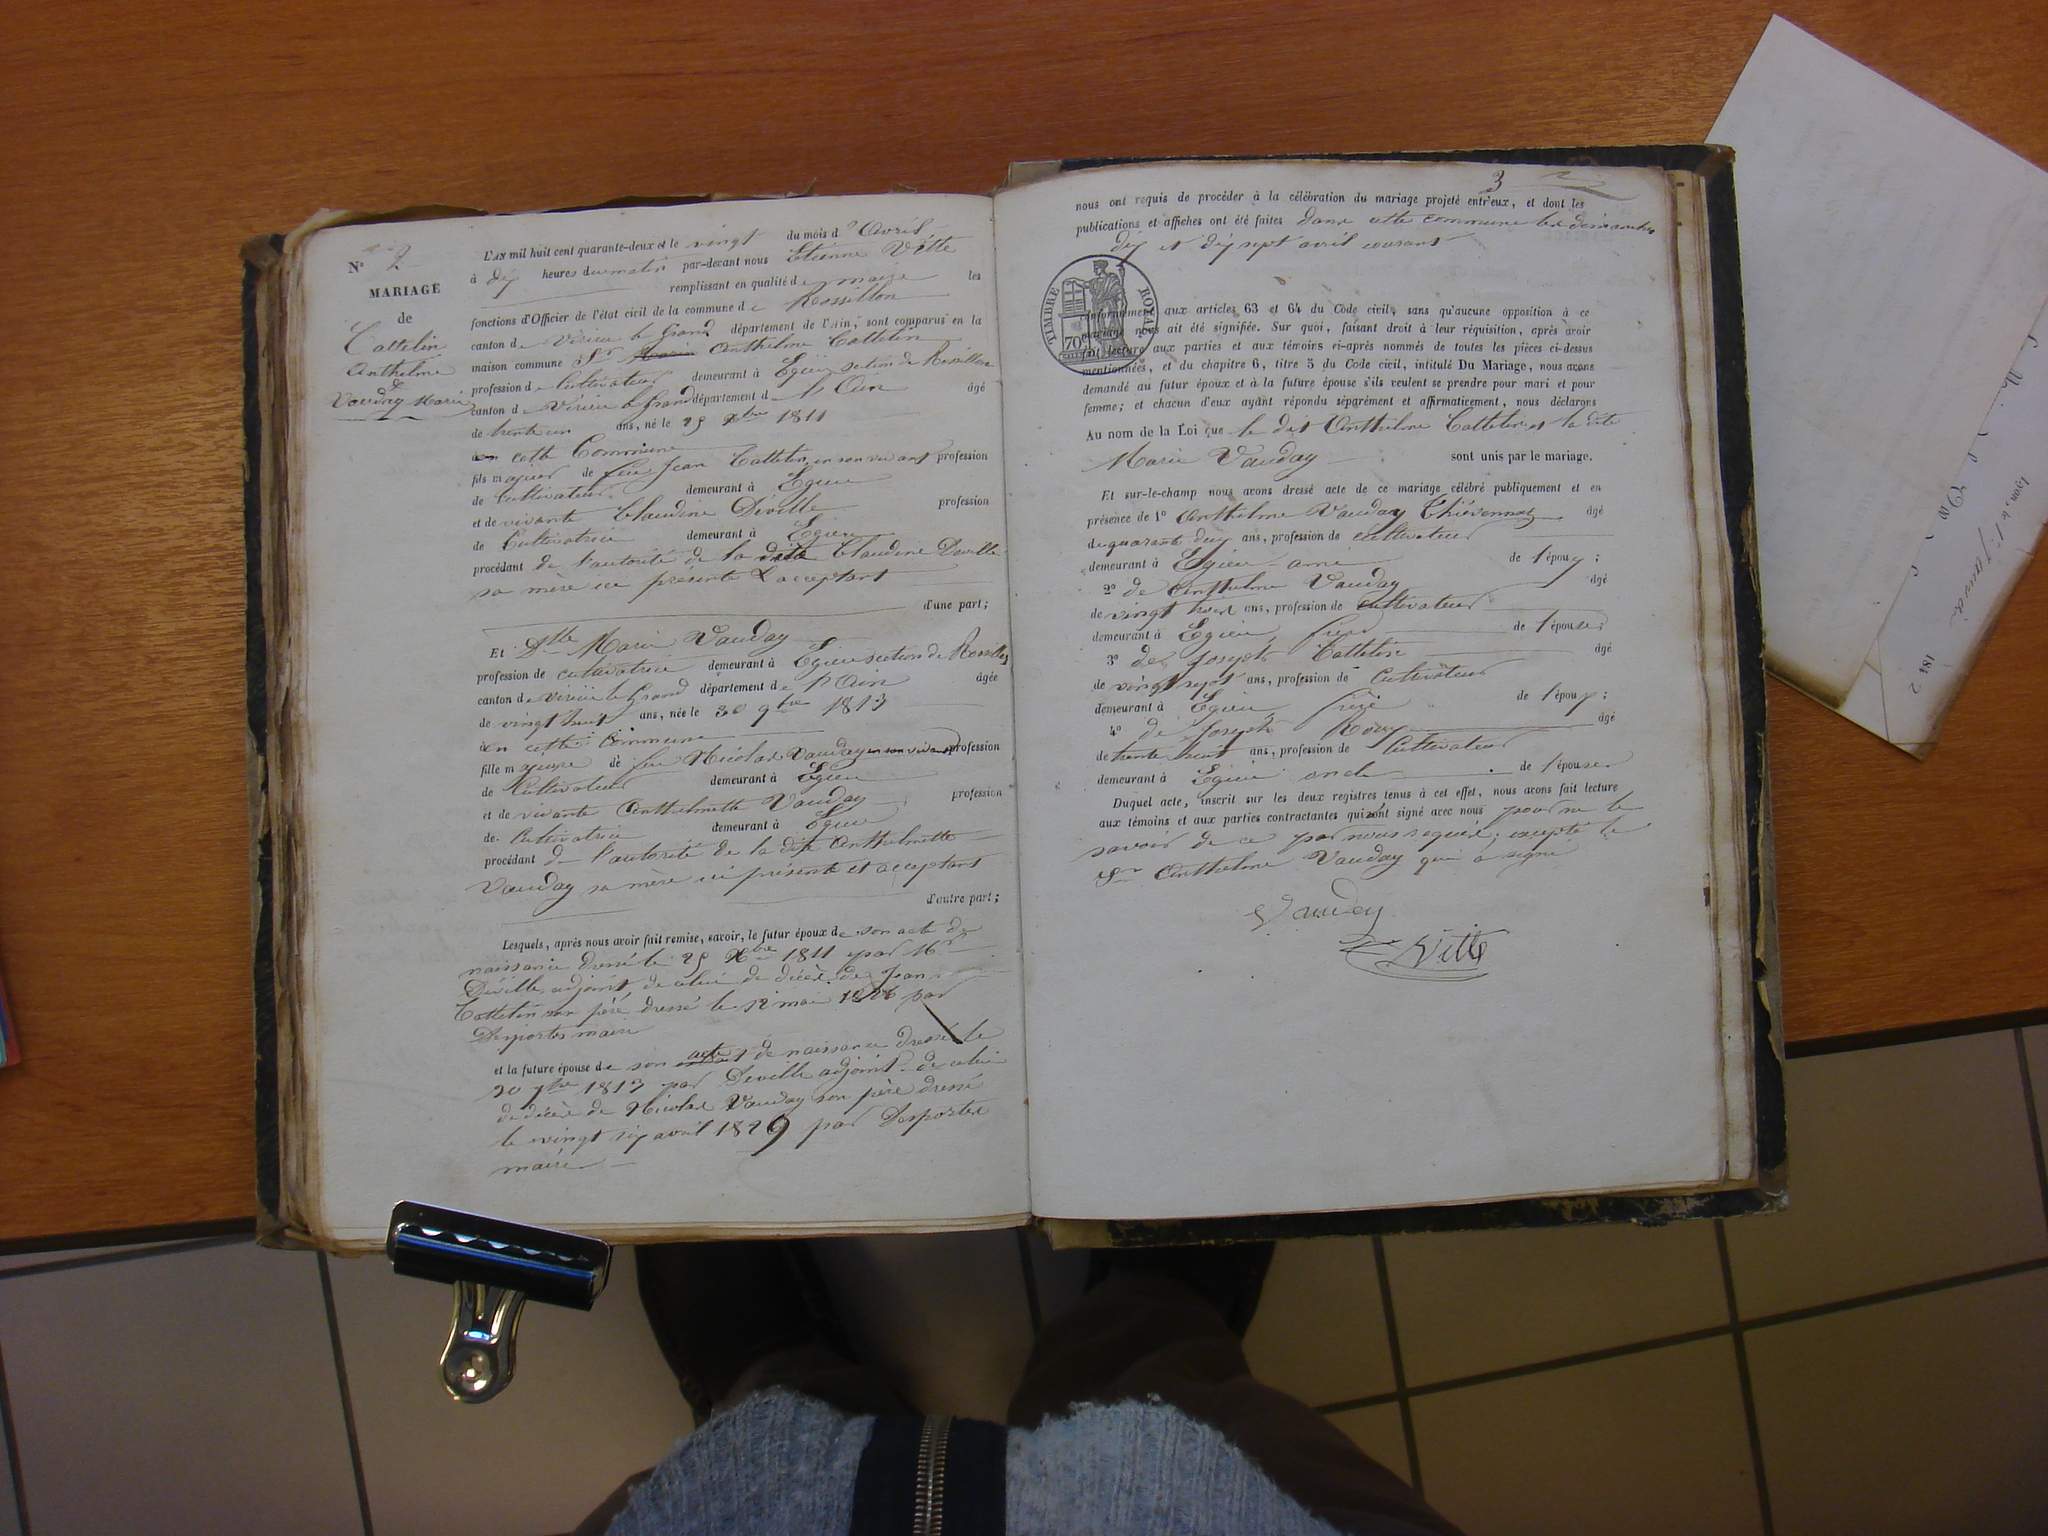 N° 2
MARIAGE
de
Cattelin
Anthelme
&
Vauday Marie
L'AN mil huit cent quarante-deux et le vingt du mois d' Avril
à dix heures du matin par-devant nous Etienne Vitte
remplissant en qualité de maire les
fonctions d'Officier de l'état civil de la commune de Rossillon
canton de Virieu le Grand département de l'Ain, sont comparus en la
maison commune Sr Marie Anthelme Cattelin
profession de Cultivateur demeurant à Egieu section de Rossillon
canton de Virieu le Grand département de l'Ain âgé
de trente un ans, né le 25 Xbre 1811
en cette Commune
fils majeur de feu Jean Cattelin en son vivant profession
de Cultivateur demeurant à Egieu
et de vivante Claudine Déville profession
de Cultivatrice demeurant à Egieu
procédant de l'autorité de la dite Claudine Deville
sa mère ici présente & acceptant
d'une part;
Et Dlle Marie Vauday
profession de cultivatrice demeurant à Egieu section de Rossillon
canton de Virieu le Grand département de l'Ain âgée
de vingt huit ans, née le 30 9bre 1813
en cette commune
fille majeure de feu Nicolas Vauday en son vivant profession
de Cultivateur demeurant à Egieu
et de vivante Anthelmette Vauday profession
de Cultivatrice demeurant à Egieu
procédant de l'autorité de la dite Anthelmette
Vauday sa mère ici présente et acceptant
d'autre part;
Lesquels, après nous avoir fait remise, savoir, le futur époux de son acte de
naissance dressé le 25 Xbre 1811 par Mr
Déville adjoint, de celui de décès de Jean
Cattelin son père dressé le 12 mai 1826 par
Desportes maire
et la future épouse de son acte de naissance dressé le
30 9bre 1813 par Deville adjoint de celui
de décès de Nicolas Vauday son père dressé
le vingt six avril 1829 par Desportes
maire
3
nous ont requis de procéder à la célébration du mariage projeté entr'eux, et dont les
publications et affiches ont été faites dans cette commune les dimanches
dix et dix sept avril courant
TIMBRE ROYAL
70
conformément aux articles 63 et 64 du Code civil, sans qu'aucune opposition à ce
mariage nous ait été signifiée. Sur quoi, faisant droit à leur réquisition, après avoir
fait lecture aux parties et aux témoins ci-après nommés de toutes les pièces ci-dessus
mentionnées, et du chapitre 6, titre 5 du Code civil, intitulé Du Mariage, nous avons
demandé au futur époux et à la future épouse s'ils veulent se prendre pour mari et pour
femme; et chacun d'eux ayant répondu séparément et affirmativement, nous déclarons
Au nom de la Loi que le dit Anthelme Cattelin et la dite
Marie Vauday sont unis par le mariage.
Et sur-le-champ nous avons dressé acte de ce mariage célébré publiquement et en
présence de 1° Anthelme Vauday Thiévennaz âgé
de quarante deux ans, profession de cultivateur
demeurant à Egieu ami de l'époux;
2° de Anthelme Vauday âgé
de vingt trois ans, profession de cultivateur
demeurant à Egieu frère de l'épouse;
3° de Joseph Cattelin âgé
de vingt sept ans, profession de Cultivateur
demeurant à Egieu frère de l'époux;
4° de Joseph Roux âgé
de trente huit ans, profession de Cultivateur
demeurant à Egieu oncle de l'épouse
Duquel acte, inscrit sur les deux registres tenus à cet effet, nous avons fait lecture
aux témoins et aux parties contractantes qui n'ont signé avec nous pour ne le
savoir de ce par nous requis, excepté le
Sr Anthelme Vauday qui a signé
Vauday
E Vitte
Lyon, le 1er Janvier 1842